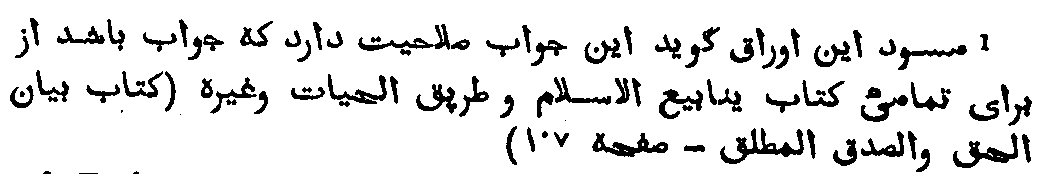 ¹ مسود این اوراق گوید این جواب صلاحیت دارد که جواب باشد از
برای تمامئ کتاب ینابیع الاسلام و طریق الحیات وغیرة (کتاب بیان
الحق والصدق المطلق - صفحة ١٠٧)